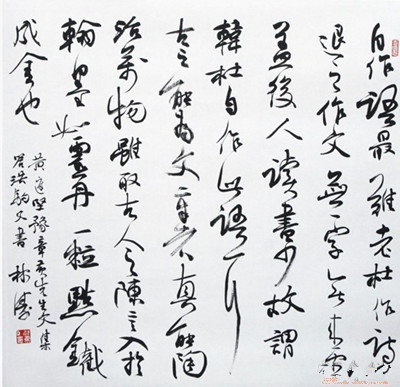 自作語最難老杜作詩
退之作文無一字無来處
蓋後人讀書少故謂
韓杜自作此語耳
古之能為文章者真能陶
冶萬物雖取古人之陳言入於
翰墨如靈丹一粒點鐵
成金也
黄庭堅豫章黄先生文集
答洪駒父書